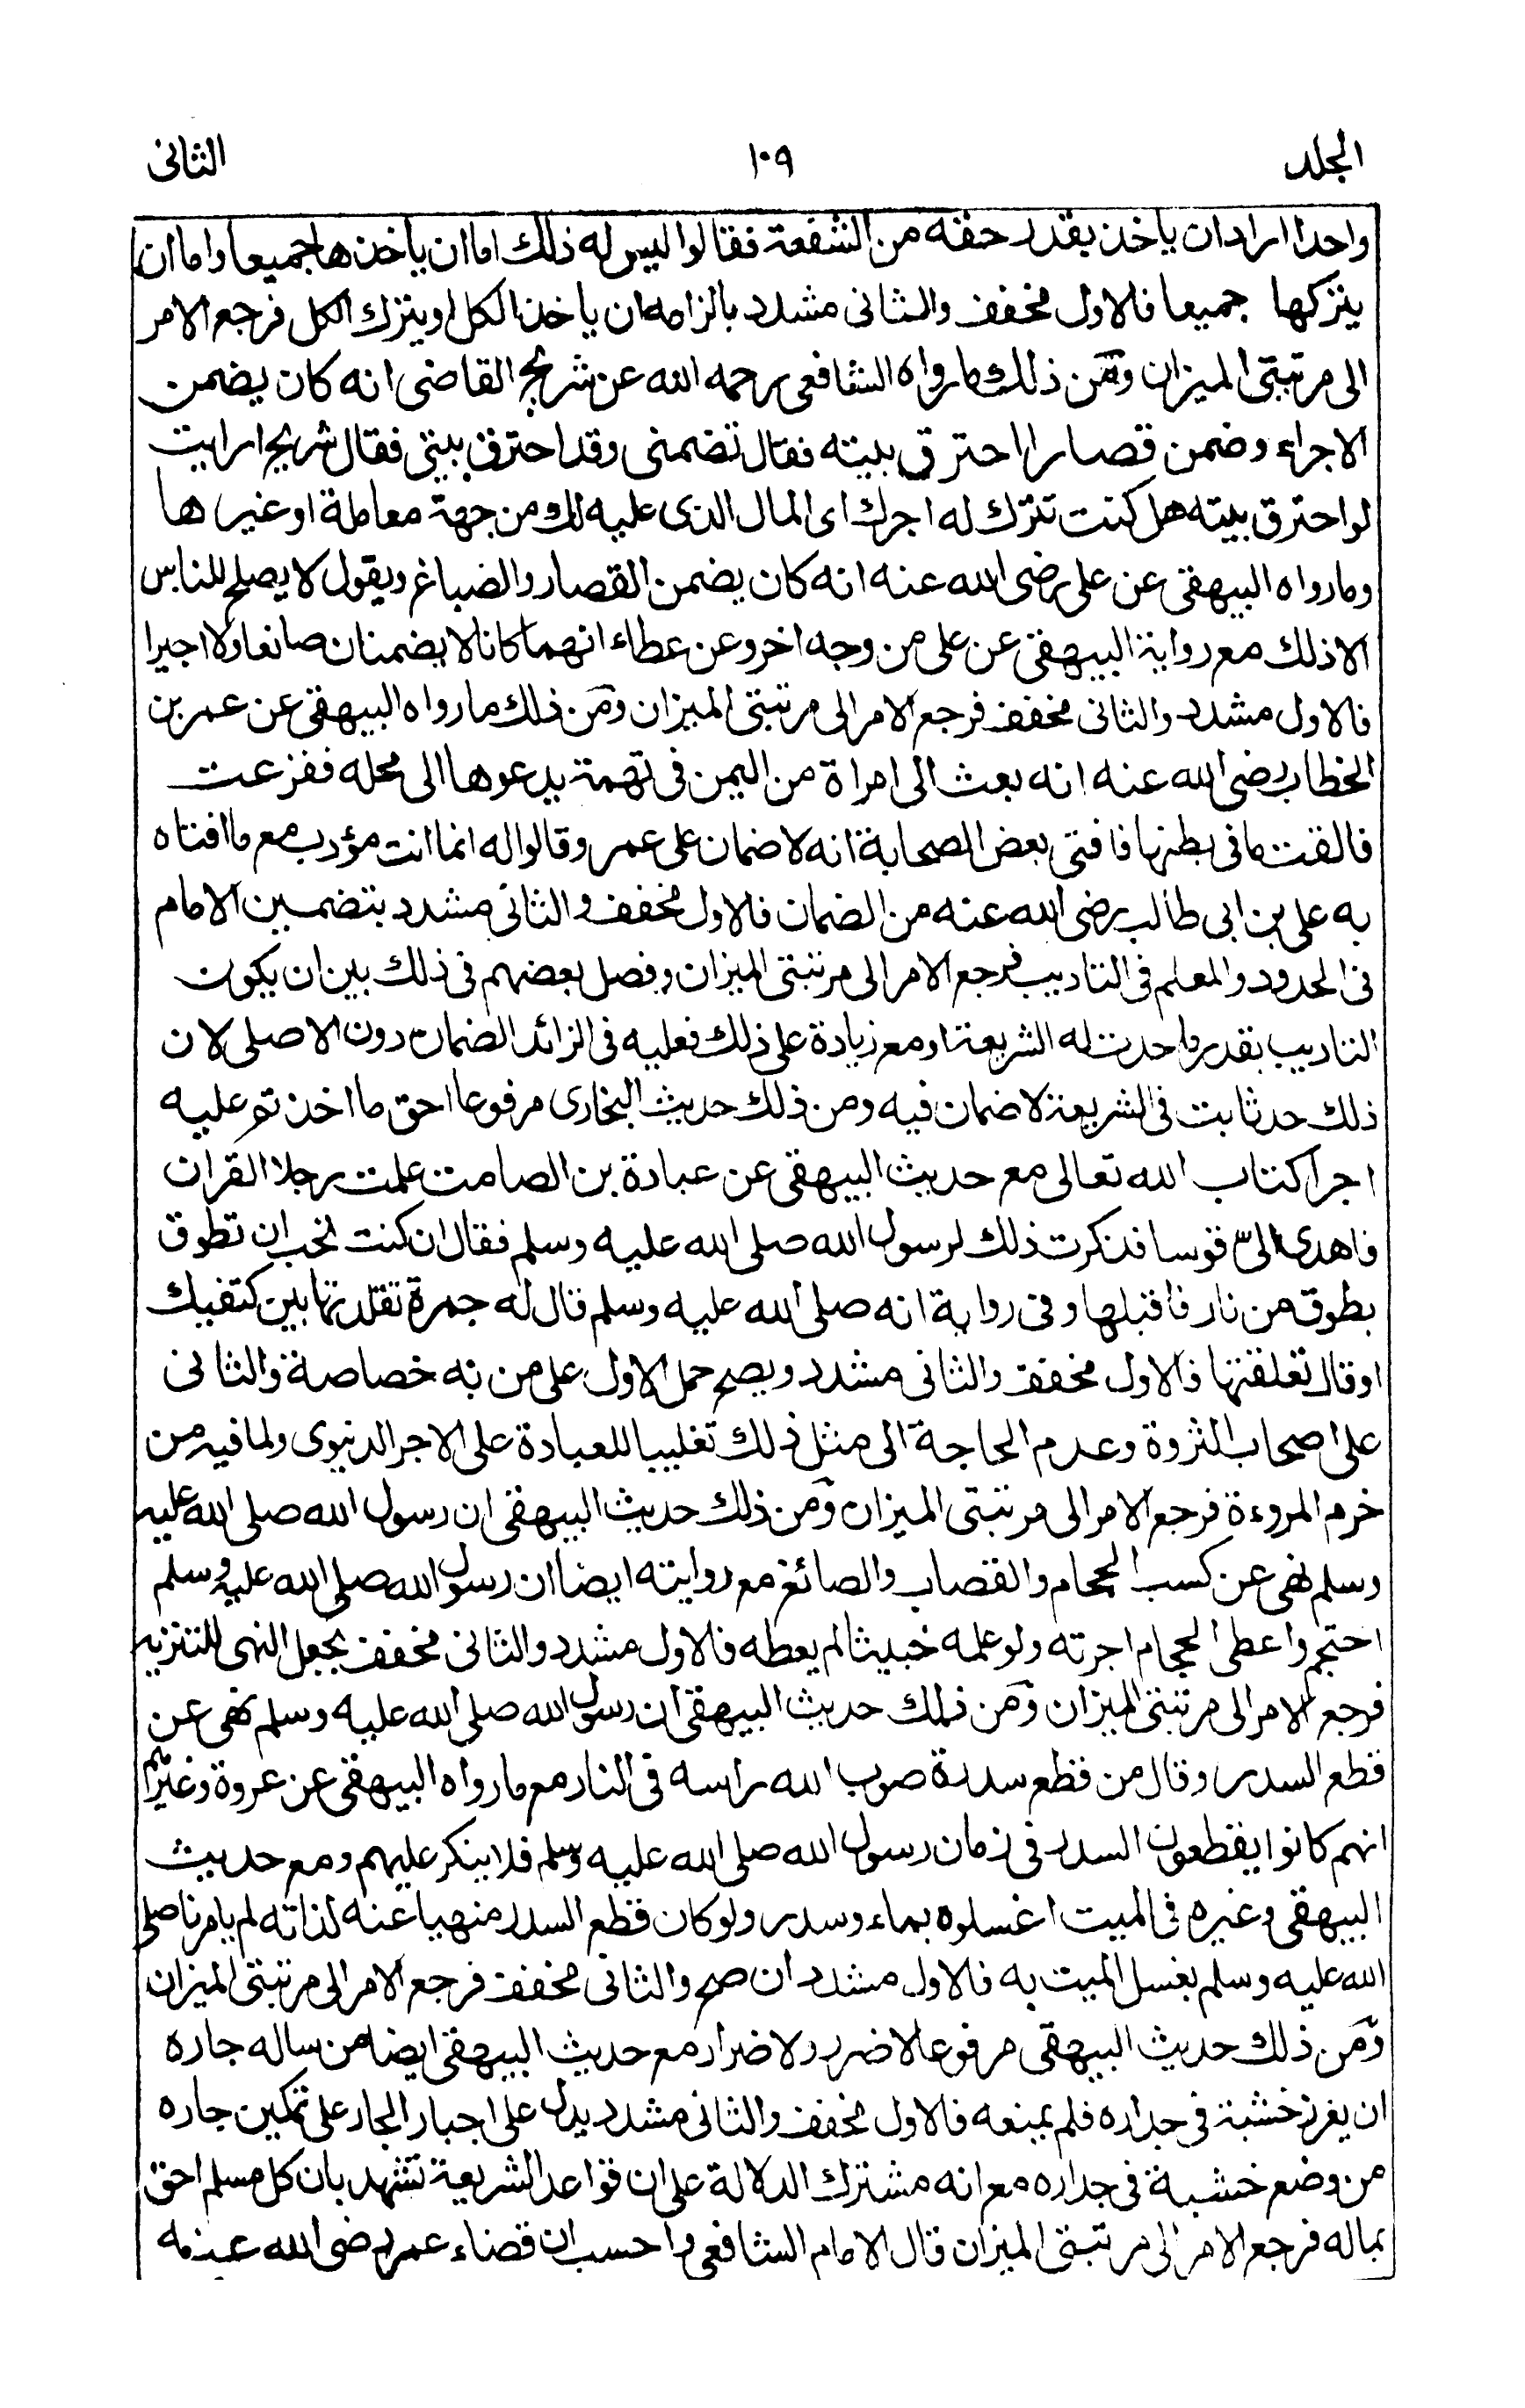 المجلد ١٠٩ الثانى
واحدا اراد ان ياخذ بقدر حقه من الشفعة فقالوا ليس له ذلك اما ان ياخذها جميعا واما ان
يتركها جميعا فالاول مخفف والثانى مشدد بالزامه ان ياخذ الكل او يترك الكل فرجع الامر
الى مرتبتى الميزان ومن ذلك ما رواه الشافعى رحمه الله عن شريح القاضى انه كان يضمن
الاجراء وضمن قصارا احترق بيته فقال تضمنى وقد احترق بيتى فقال شريح ارايت
لو احترق بيته هل كنت تترك له اجرك اى المال الذى عليه لك من جهة معاملة او غيرها
وما رواه البيهقى عن على رضى الله عنه انه كان يضمن القصار والضباغ ويقول لا يصلح للناس
الا ذلك مع رواية البيهقى عن على من وجه اخر وعن عطاء انهما كانا لا يضمنان صانعا ولا اجيرا
فالاول مشدد والثانى مخفف فرجع الامر الى مرتبتى الميزان ومن ذلك ما رواه البيهقى عن عمر بن
الخطاب رضى الله عنه انه بعث الى امراة من اليمن فى تهمة يدعوها الى محله ففزعت
فالقت ما فى بطنها فافتى بعض الصحابة انه لا ضمان على عمر وقالوا له انما انت مؤدب مع ما افتاه
به على بن ابى طالب رضى الله عنه من الضمان فالاول مخفف والثانى مشدد بتضمين الامام
فى الحدود والمعلم فى التاديب فرجع الامر الى مرتبتى الميزان وفصل بعضهم فى ذلك بين ان يكون
التاديب بقدر ما حدت له الشريعة او مع زيادة على ذلك فعليه فى الزائد الضمان دون الاصلى لان
ذلك حد ثابت فى الشريعة لا ضمان فيه ومن ذلك حديث البخارى مرفوعا احق ما اخذتم عليه
اجرا كتاب الله تعالى مع حديث البيهقى عن عبادة بن الصامت علمت رجلا القران
فاهدى الىّ قوسا فذكرت ذلك لرسول الله صلى الله عليه وسلم فقال ان كنت تحب ان تطوق
بطوق من نار فاقبلها وفى رواية انه صلى الله عليه وسلم قال له جمرة تقلدتها بين كتفيك
او قال تعلقتها فالاول مخفف والثانى مشدد ويصح حمل الاول على من به خصاصة والثانى
على اصحاب الثروة وعدم الحاجة الى مثل ذلك تغليبا للعبادة على الاجر الدنيوى ولما فيه من
خرم المروءة فرجع الامر الى مرتبتى الميزان ومن ذلك حديث البيهقى ان رسول الله صلى الله عليه
وسلم نهى عن كسب الحجام والقصاب والصائغ مع روايته ايضا ان رسول الله صلى الله عليه وسلم
احتجم واعطى الحجام اجرته ولو علمه خبيثا لم يعطه فالاول مشدد والثانى مخفف بجعل النهى للتنزيه
فرجع الامر الى مرتبتى الميزان ومن ذلك حديث البيهقى ان رسول الله صلى الله عليه وسلم نهى عن
قطع السدر وقال من قطع سدرة صوب الله راسه فى النار مع ما رواه البيهقى عن عروة وغيره
انهم كانوا يقطعون السدر فى زمان رسول الله صلى الله عليه وسلم فلا ينكر عليهم ومع حديث
البيهقى وغيره فى الميت اغسلوه بماء وسدر ولو كان قطع السدر منهيا عنه لذاته لم يامرنا صلى
الله عليه وسلم بغسل الميت به فالاول مشدد ان صح والثانى مخفف فرجع الامر الى مرتبتى الميزان
ومن ذلك حديث البيهقى مرفوعا لا ضرر ولا ضرار مع حديث البيهقى ايضا من ساله جاره
ان يغرز خشبة فى جداره فلم يمنعه فالاول مخفف والثانى مشدد يدل على اجبار الجار على تمكين جاره
من وضع خشبة فى جداره مع انه مشترك الدلالة على ان قواعد الشريعة تشهد بان كل مسلم احق
بماله فرجع الامر الى مرتبتى الميزان قال الامام الشافعى واحسب ان قضاء عمر رضى الله عنه